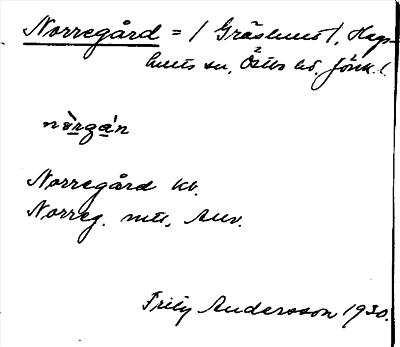 Norregård = / Gräshult /, Hags-
hults sn, Östbo hd. Jönk. l.
nòrgán
Norregård kb.
Norreg. mtl, Anv.
Frity Andersson 1930.